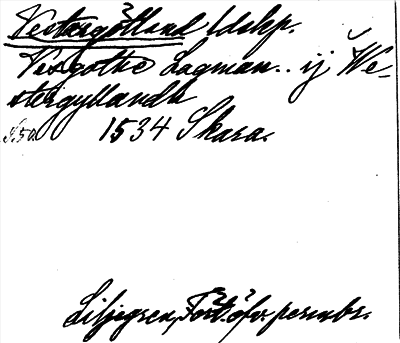 Västergötland ldskp.
Vesgothe Lagman.. ij We-
stergyllandh
s. 50. 1534 Skara.
Liljegren, Fört. öfv. permbr.